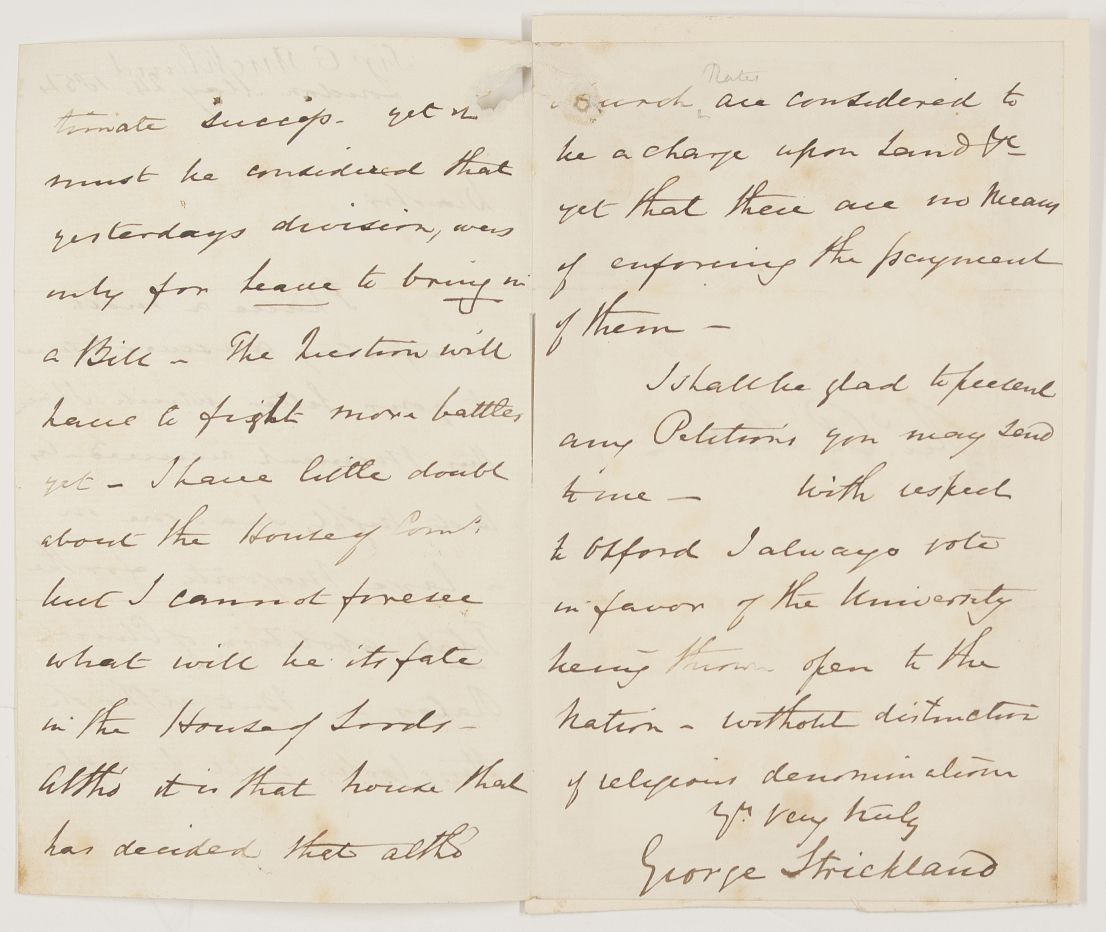 timate success - yet it
must be considered that
yesterdays division, was
only for leave to bring in
a Bill - The Question will
have to fight more battles
yet - I have little doubt
about the House of Coms.
but I cannot foresee
what will be its fate
in the House of Lords -
altho' it is that house that
has decided that altho'
Rates
Church are considered to
be a charge upon Land &c
yet that there are no Means
of enforcing the payment
of them -
I shall be glad to present
any Petitions you may send
to me - With respect
to Oxford I always vote
in favor of the University
being thrown open to the
Nation - without distinction
of religious denomination
Yrs. Very truly
George Strickland